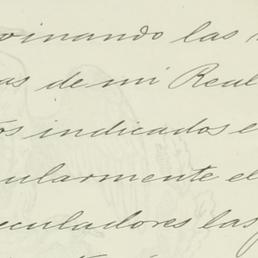 vinando las
as de mi Real
os indicados e
ularmente el
eculadores las